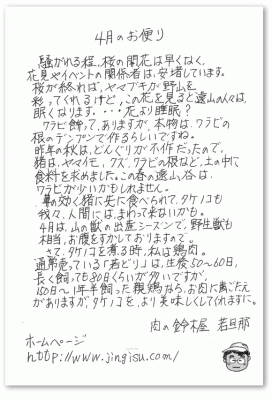 4月のお便り
騒がれる程、桜の開花は早くなく、
花見やイベントの関係者は、安堵しています。
桜が終れば、ヤマブキが野山を
彩ってくれるけど、この花を見ると遠山の人々は、
眠くなります。・・・花より睡眠？
ワラビ餅って、ありますが、本物は、ワラビの
根のデンプンで作るらしいですね。
昨年の秋は、どんぐりが不作だったので、
猪は、ヤマイモ、クズ、ワラビの根など、土の中に
食料を求めました。この春の遠山谷は、
ワラビが少いかもしれません。
草の効く猪に先に食べられて、タケノコも
我々、人間には、まわって来ないかも。
4月は、山の獣の出産シーズンで、野生獣も
相当、お腹をすかしておりますので。
さて、タケノコを煮る時、私は鶏肉。
通常売っている「若どり」は、生後50〜60日、
長く飼っても80日くらいが多いですが、
150日〜1年半飼った親鶏なら、お肉に歯ごたえ
がありますが、タケノコを、より美味しくしてくれますに。
肉の鈴木屋 若旦那
ホームページ
http://www.jingisu.com/